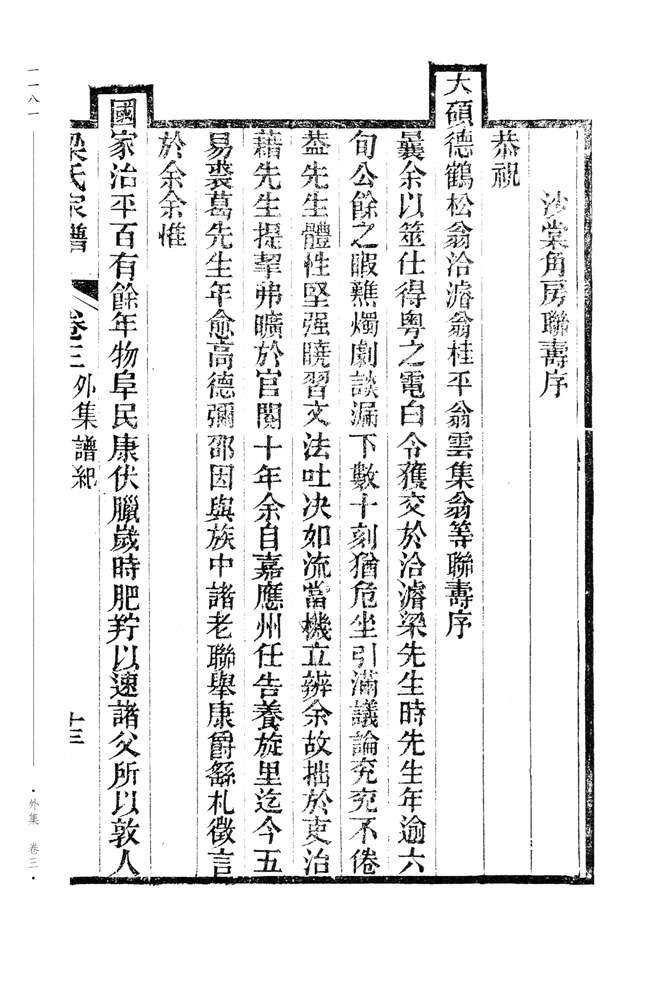 沙棠角房聯壽序
恭祝
大碩德鶴松翁洽濬翁桂平翁雲集翁等聯壽序
曩余以筮仕得粵之電白令獲交於洽濬梁先生時先生年逾六
旬公餘之暇蘸燭劇談漏下數十刻猶危坐引滿議論亮亮不倦
葢先生體性堅强曉習文法吐决如流當機立辨余故拙於吏治
藉先生提挈弗曠於官閱十年余自嘉應州任告養旋里迄今五
易裘葛先生年愈高德彌邵因與族中諸老聯舉康爵繇札徵言
於余余惟
國家治平百有餘年物阜民康伏臘歲時肥羜以速諸父所以敦人
梁氏家譜 卷三外集譜紀 十三
一一八一
·外集 卷三·